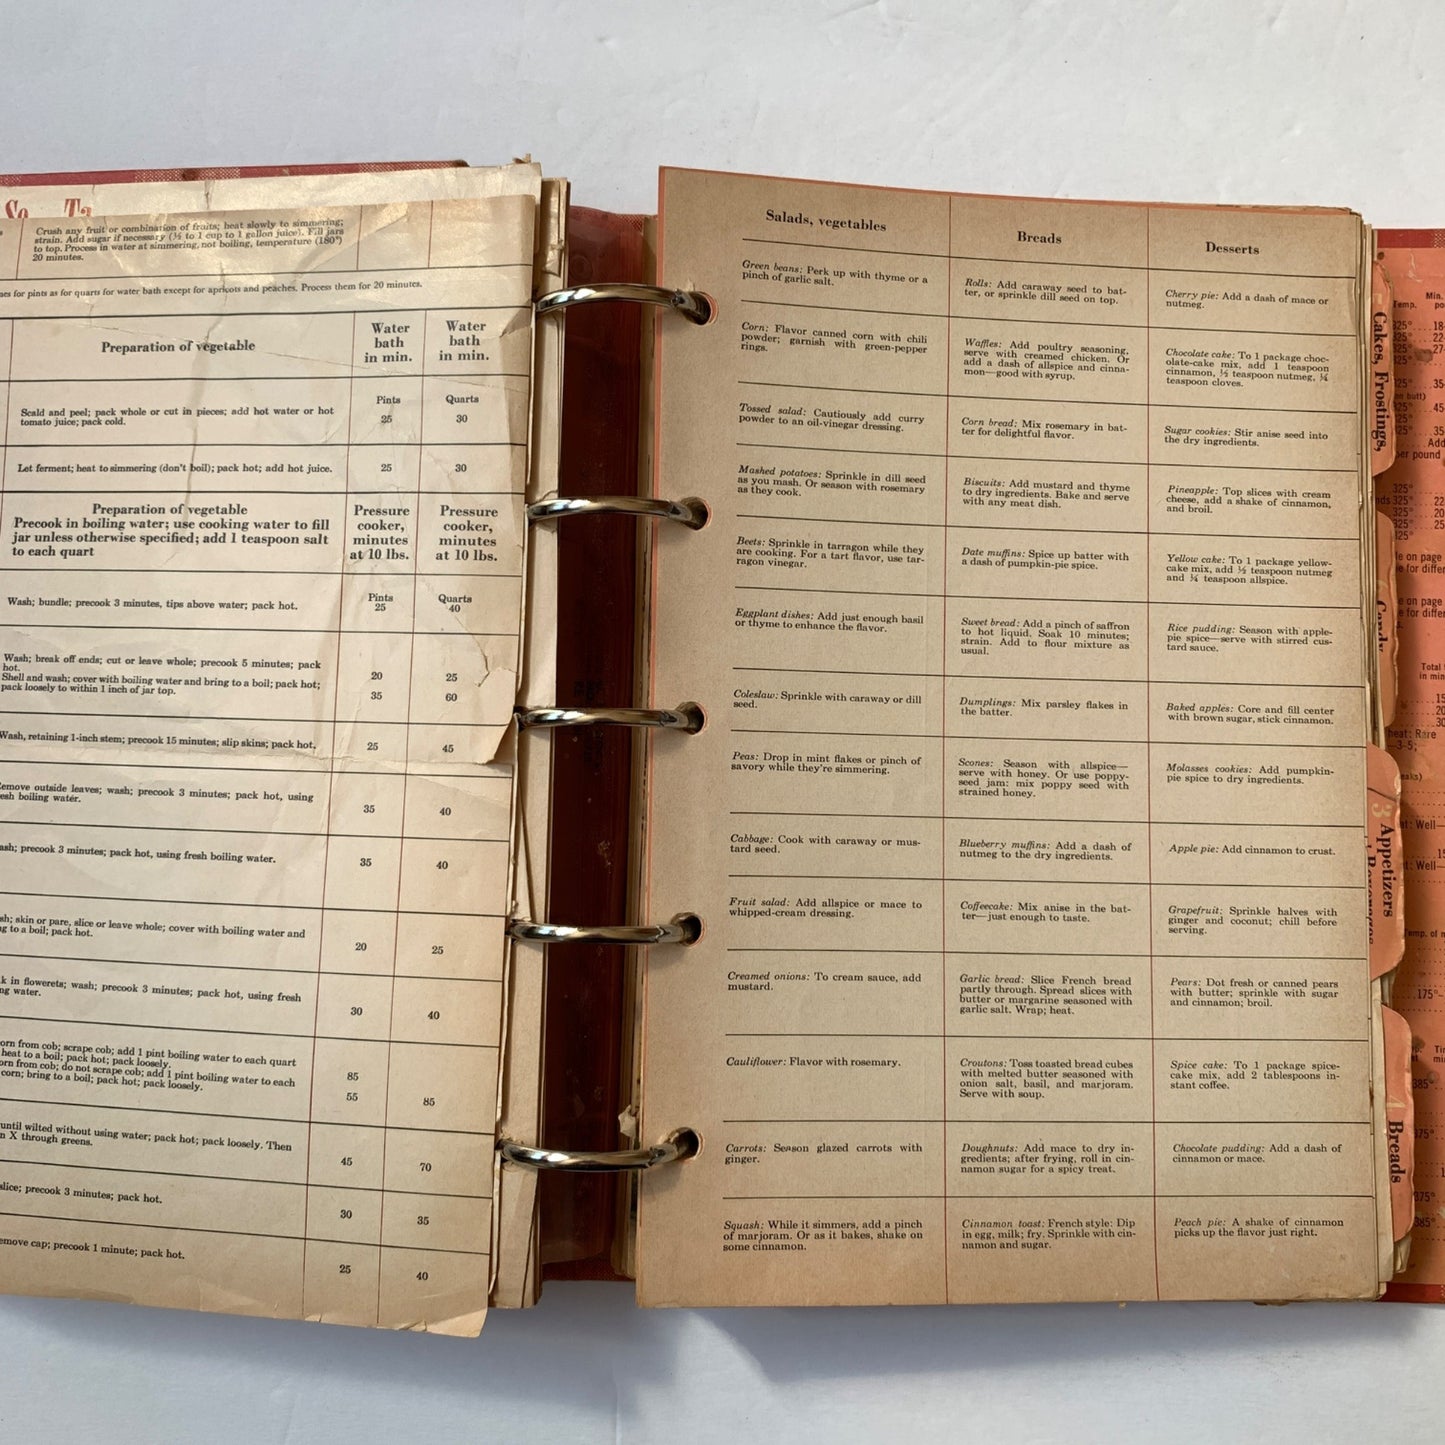 So
Ta
Crush any fruit or combination of fruits; heat slowly to simmering;
strain. Add sugar if necessary (½ to 1 cup to 1 gallon juice). Fill jars
to top. Process in water at simmering, not boiling, temperature (180°)
20 minutes.
es for pints as for quarts for water bath except for apricots and peaches. Process them for 20 minutes.
Preparation of vegetable
Water
bath
in min.
Water
bath
in min.
Scald and peel; pack whole or cut in pieces; add hot water or hot
tomato juice; pack cold.
Pints
25
Quarts
30
Let ferment; heat to simmering (don't boil); pack hot; add hot juice.
25
30
Preparation of vegetable
Precook in boiling water; use cooking water to fill
jar unless otherwise specified; add 1 teaspoon salt
to each quart
Pressure
cooker,
minutes
at 10 lbs.
Pressure
cooker,
minutes
at 10 lbs.
Wash; bundle; precook 3 minutes, tips above water; pack hot.
Pints
25
Quarts
40
Wash; break off ends; cut or leave whole; precook 5 minutes; pack
hot.
Shell and wash; cover with boiling water and bring to a boil; pack hot;
pack loosely to within 1 inch of jar top.
20
35
25
60
Wash, retaining 1-inch stem; precook 15 minutes; slip skins; pack hot.
25
45
emove outside leaves; wash; precook 3 minutes; pack hot, using
esh boiling water.
35
40
ash; precook 3 minutes; pack hot, using fresh boiling water.
35
40
sh; skin or pare, slice or leave whole; cover with boiling water and
g to a boil; pack hot.
20
25
k in flowerets; wash; precook 3 minutes; pack hot, using fresh
ng water.
30
40
orn from cob; scrape cob; add 1 pint boiling water to each quart
heat to a boil; pack hot; pack loosely.
orn from cob; do not scrape cob; add 1 pint boiling water to each
corn; bring to a boil; pack hot; pack loosely.
85
55
85
until wilted without using water; pack hot; pack loosely. Then
n X through greens.
45
70
slice; precook 3 minutes; pack hot.
30
35
emove cap; precook 1 minute; pack hot.
25
40
Salads, vegetables
Green beans: Perk up with thyme or a
pinch of garlic salt.
Corn: Flavor canned corn with chili
powder; garnish with green-pepper
rings.
Tossed salad: Cautiously add curry
powder to an oil-vinegar dressing.
Mashed potatoes: Sprinkle in dill seed
as you mash. Or season with rosemary
as they cook.
Beets: Sprinkle in tarragon while they
are cooking. For a tart flavor, use tar-
ragon vinegar.
Eggplant dishes: Add just enough basil
or thyme to enhance the flavor.
Coleslaw: Sprinkle with caraway or dill
seed.
Peas: Drop in mint flakes or pinch of
savory while they're simmering.
Cabbage: Cook with caraway or mus-
tard seed.
Fruit salad: Add allspice or mace to
whipped-cream dressing.
Creamed onions: To cream sauce, add
mustard.
Cauliflower: Flavor with rosemary.
Carrots: Season glazed carrots with
ginger.
Squash: While it simmers, add a pinch
of marjoram. Or as it bakes, shake on
some cinnamon.
Breads
Rolls: Add caraway seed to bat-
ter, or sprinkle dill seed on top.
Waffles: Add poultry seasoning,
serve with creamed chicken. Or
add a dash of allspice and cinna-
mon—good with syrup.
Corn bread: Mix rosemary in bat-
ter for delightful flavor.
Biscuits: Add mustard and thyme
to dry ingredients. Bake and serve
with any meat dish.
Date muffins: Spice up batter with
a dash of pumpkin-pie spice.
Sweet bread: Add a pinch of saffron
to hot liquid. Soak 10 minutes;
strain. Add to flour mixture as
usual.
Dumplings: Mix parsley flakes in
the batter.
Scones: Season with allspice—
serve with honey. Or use poppy-
seed jam: mix poppy seed with
strained honey.
Blueberry muffins: Add a dash of
nutmeg to the dry ingredients.
Coffeecake: Mix anise in the bat-
ter—just enough to taste.
Garlic bread: Slice French bread
partly through. Spread slices with
butter or margarine seasoned with
garlic salt. Wrap; heat.
Croutons: Toss toasted bread cubes
with melted butter seasoned with
onion salt, basil, and marjoram.
Serve with soup.
Doughnuts: Add mace to dry in-
gredients; after frying, roll in cin-
namon sugar for a spicy treat.
Cinnamon toast: French style: Dip
in egg, milk; fry. Sprinkle with cin-
namon and sugar.
Desserts
Cherry pie: Add a dash of mace or
nutmeg.
Chocolate cake: To 1 package choc-
olate-cake mix, add 1 teaspoon
cinnamon, ½ teaspoon nutmeg, ¼
teaspoon cloves.
Sugar cookies: Stir anise seed into
the dry ingredients.
Pineapple: Top slices with cream
cheese, add a shake of cinnamon,
and broil.
Yellow cake: To 1 package yellow-
cake mix, add ½ teaspoon nutmeg
and ¼ teaspoon allspice.
Rice pudding: Season with apple-
pie spice—serve with stirred cus-
tard sauce.
Baked apples: Core and fill center
with brown sugar, stick cinnamon.
Molasses cookies: Add pumpkin-
pie spice to dry ingredients.
Apple pie: Add cinnamon to crust.
Grapefruit: Sprinkle halves with
ginger and coconut; chill before
serving.
Pears: Dot fresh or canned pears
with butter; sprinkle with sugar
and cinnamon; broil.
Spice cake: To 1 package spice-
cake mix, add 2 tablespoons in-
stant coffee.
Chocolate pudding: Add a dash of
cinnamon or mace.
Peach pie: A shake of cinnamon
picks up the flavor just right.
Cakes, Frostings,
Candy
3 Appetizers
4 Breads